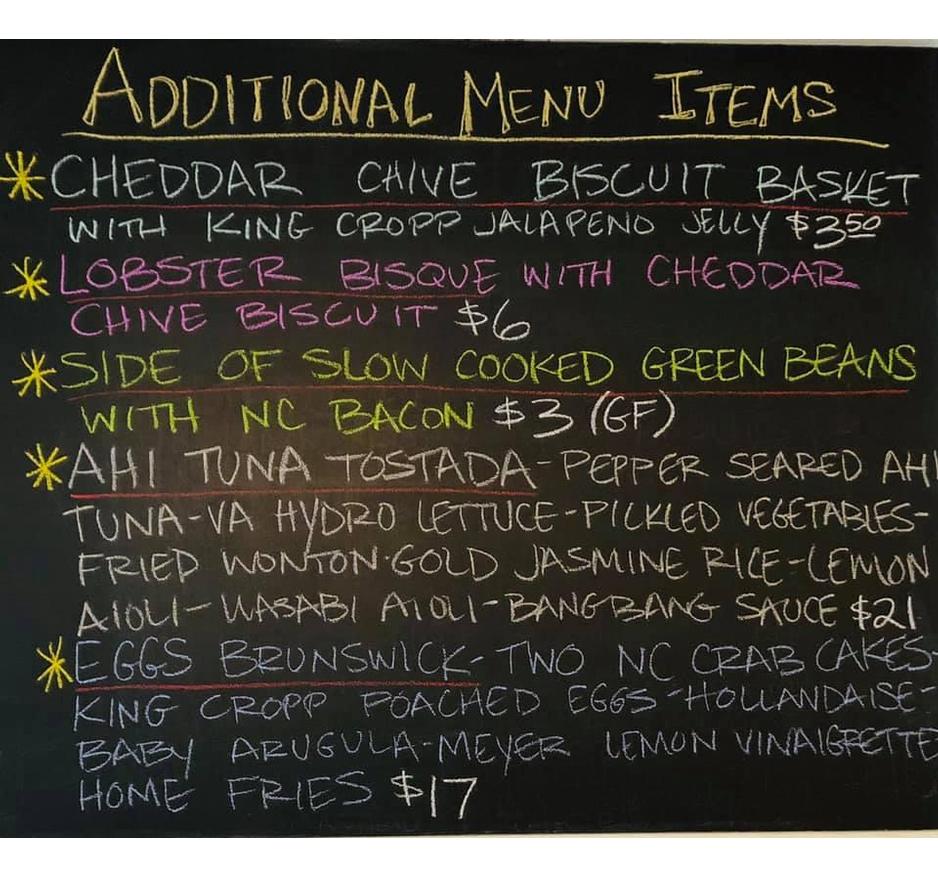 ADDITIONAL MENU ITEMS
CHEDDAR CHIVE BISCUIT BASKET
WITH KING CROPP JALAPENO JELLY $3.50
LOBSTER BISQUE WITH CHEDDAR
CHIVE BISCUIT $6
SIDE OF SLOW COOKED GREEN BEANS
WITH NC BACON $3 (GF)
AHI TUNA TOSTADA-PEPPER SEARED AHI
TUNA-VA HYDRO LETTUCE-PICKLED VEGETABLES-
FRIED WONTON-GOLD JASMINE RICE-LEMON
AIOLI-WASABI AIOLI-BANGBANG SAUCE $21
EGGS BRUNSWICK-TWO NC CRAB CAKES-
KING CROPP POACHED EGGS-HOLLANDAISE-
BABY ARUGULA-MEYER LEMON VINAIGRETTE
HOME FRIES $17